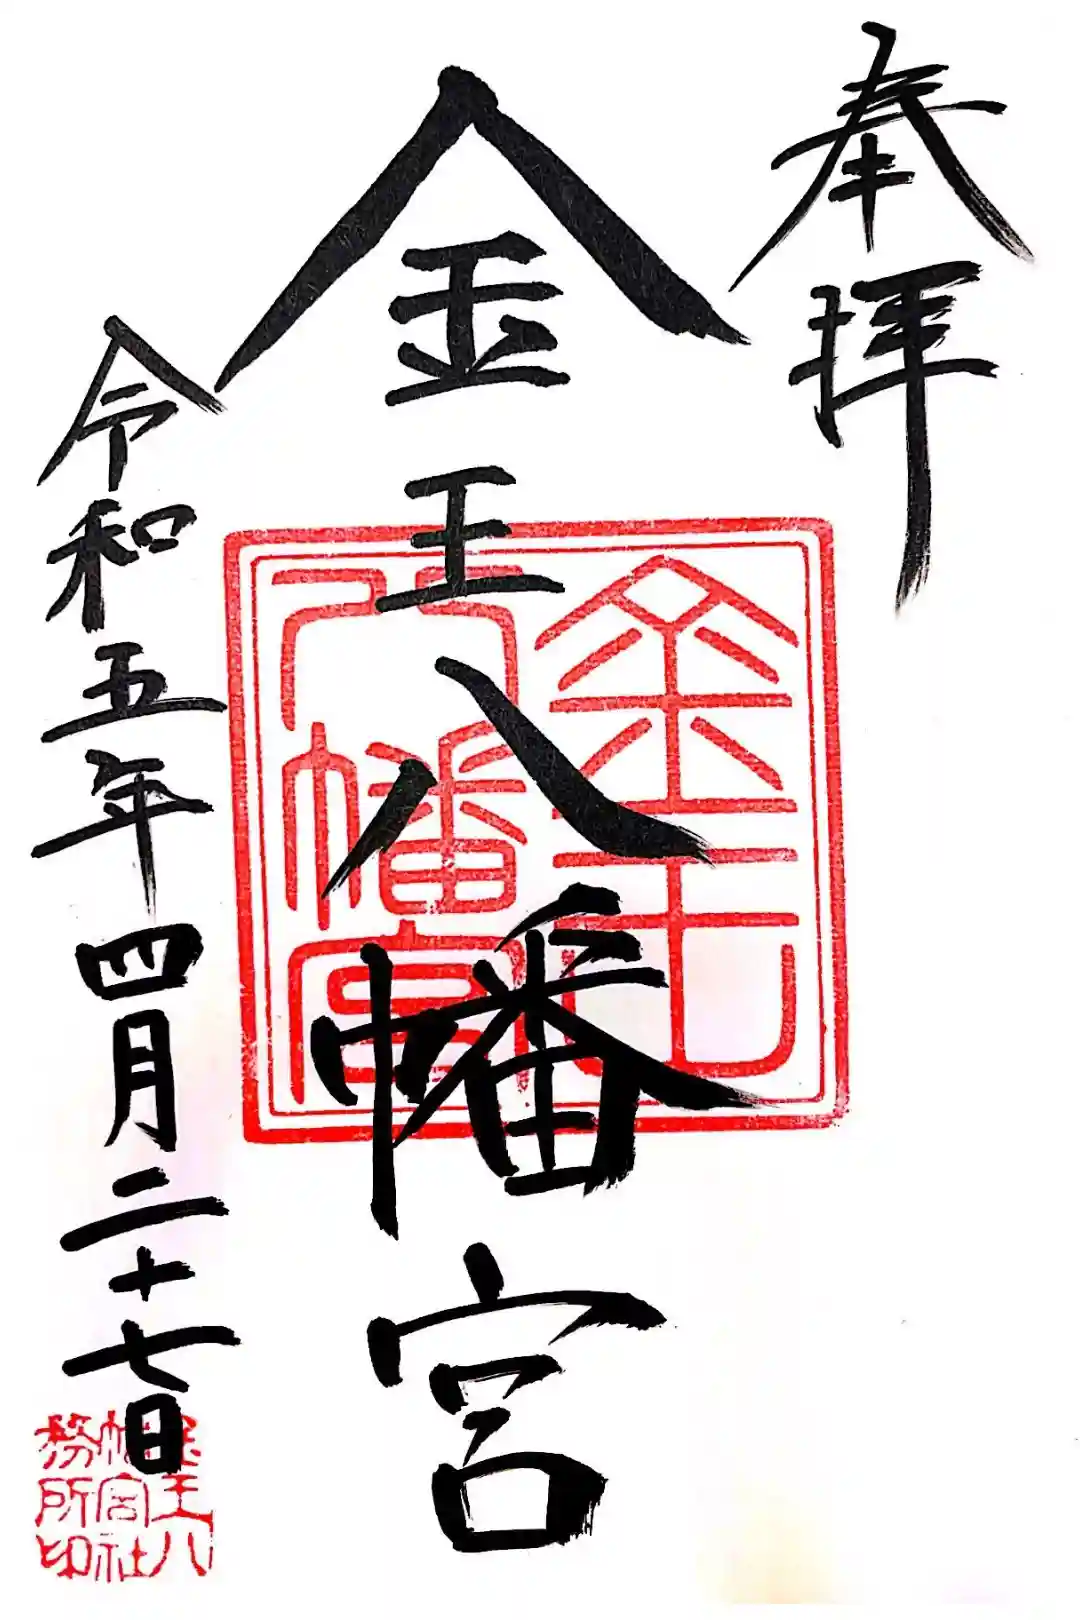 奉拝
金王八幡宮
金王
八幡宮
令和五年四月二十七日
金王八
幡宮社
務所印